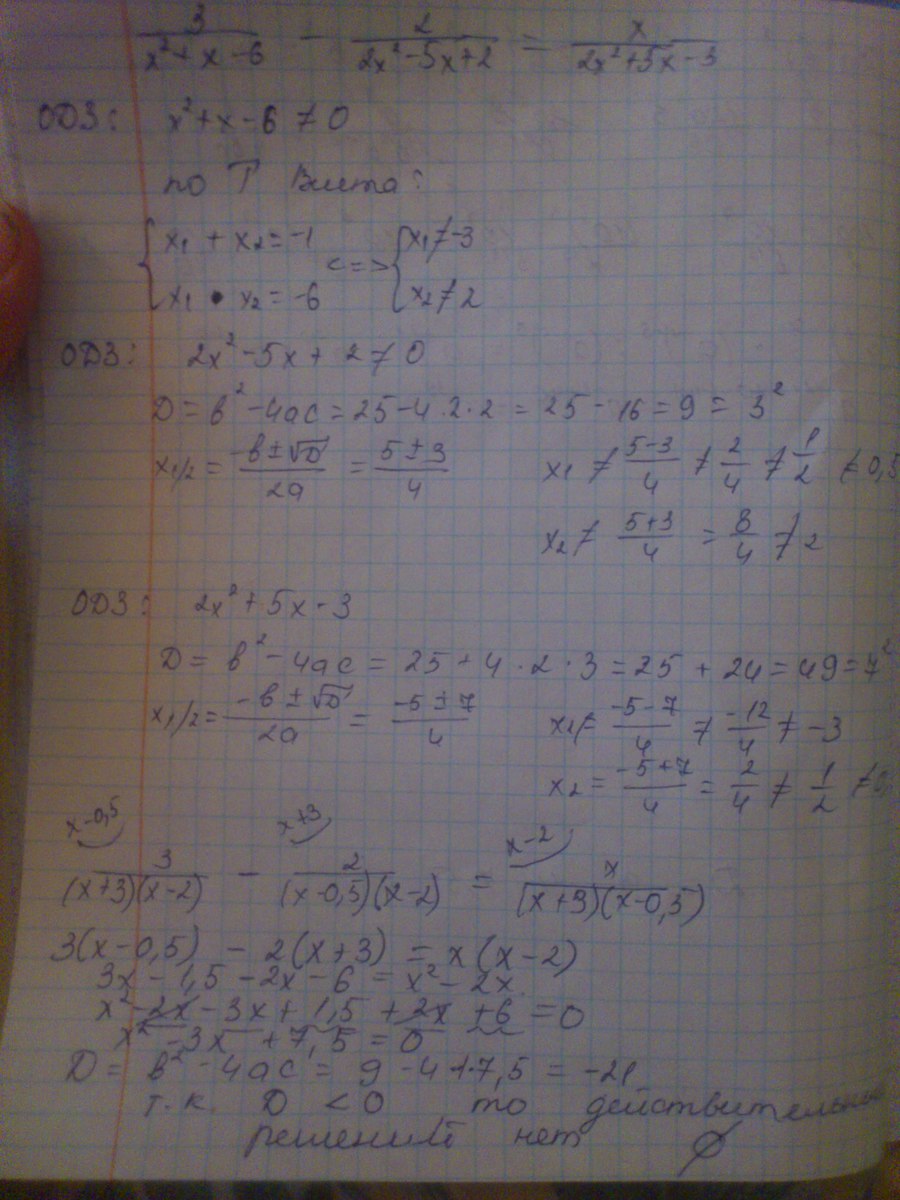 3/(x²+x-6) - 2/(2x²-5x+2) = x/(2x²+5x-3)
ОДЗ: x²+x-6 ≠ 0
по Т Виета:
{x₁ + x₂ = -1 <=> {x₁ ≠ -3
x₁ • x₂ = -6 x₂ ≠ 2
ОДЗ: 2x²-5x+2 ≠ 0
D = b²-4ac = 25-4·2·2 = 25-16 = 9 = 3²
x₁/₂ = (-b±√D)/2a = (5±3)/4 x₁ ≠ (5-3)/4 ≠ 2/4 ≠ 1/2 ≠ 0,5
x₂ ≠ (5+3)/4 = 8/4 ≠ 2
ОДЗ: 2x²+5x-3
D = b²-4ac = 25+4·2·3 = 25+24 = 49 = 7²
x₁/₂ = (-b±√D)/2a = (-5±7)/4 x₁ ≠ (-5-7)/4 ≠ -12/4 ≠ -3
x₂ = (-5+7)/4 = 2/4 ≠ 1/2
x-0,5 x+3 x-2
3/((x+3)(x-2)) - 2/((x-0,5)(x-2)) = x/((x+3)(x-0,5))
3(x-0,5) - 2(x+3) = x(x-2)
3x-1,5-2x-6 = x²-2x
x²-2x-3x+1,5+2x+6=0
x²-3x+7,5=0
D = b²-4ac = 9-4·1·7,5 = -21
т.к. D < 0 то действительных
решений нет ∅